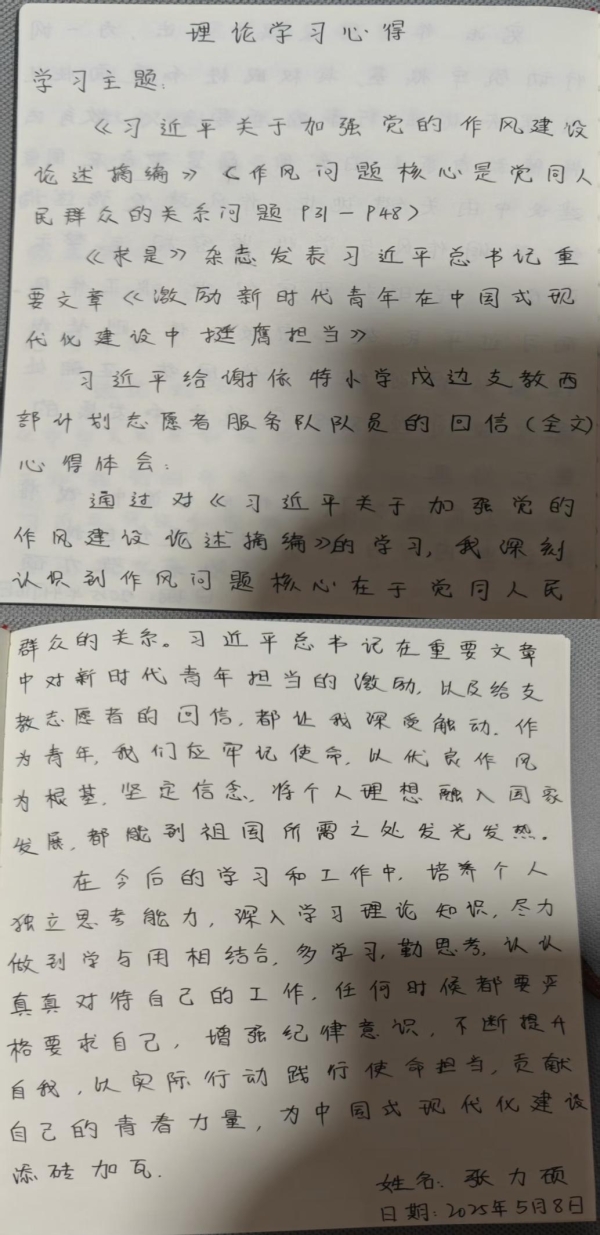 理论学习心得
学习主题:
《习近平关于加强党的作风建设
论述摘编》(作风问题核心是党同人
民群众的关系问题 P31-P48)
《求是》杂志发表习近平总书记重
要文章《激励新时代青年在中国式现
代化建设中挺膺担当》
习近平给谢依特小学戍边支教西
部计划志愿者服务队队员的回信(全文)
心得体会:
通过对《习近平关于加强党的
作风建设论述摘编》的学习,我深刻
认识到作风问题核心在于党同人民
群众的关系。习近平总书记在重要文章
中对新时代青年担当的激励,以及给支
教志愿者的回信,都让我深受触动.作
为青年,我们应牢记使命,以优良作风
为根基,坚定信念,将个人理想融入国家
发展,都能到祖国所需之处发光发热。
在今后的学习和工作中,培养个人
独立思考能力,深入学习理论知识,尽力
做到学与用相结合,多学习,勤思考,认认
真真对待自己的工作,任何时候都要严
格要求自己,增强纪律意识,不断提升
自我,以实际行动践行使命担当,贡献
自己的青春力量,为中国式现代化建设
添砖加瓦.
姓名:张力硕
日期:2025年5月8日